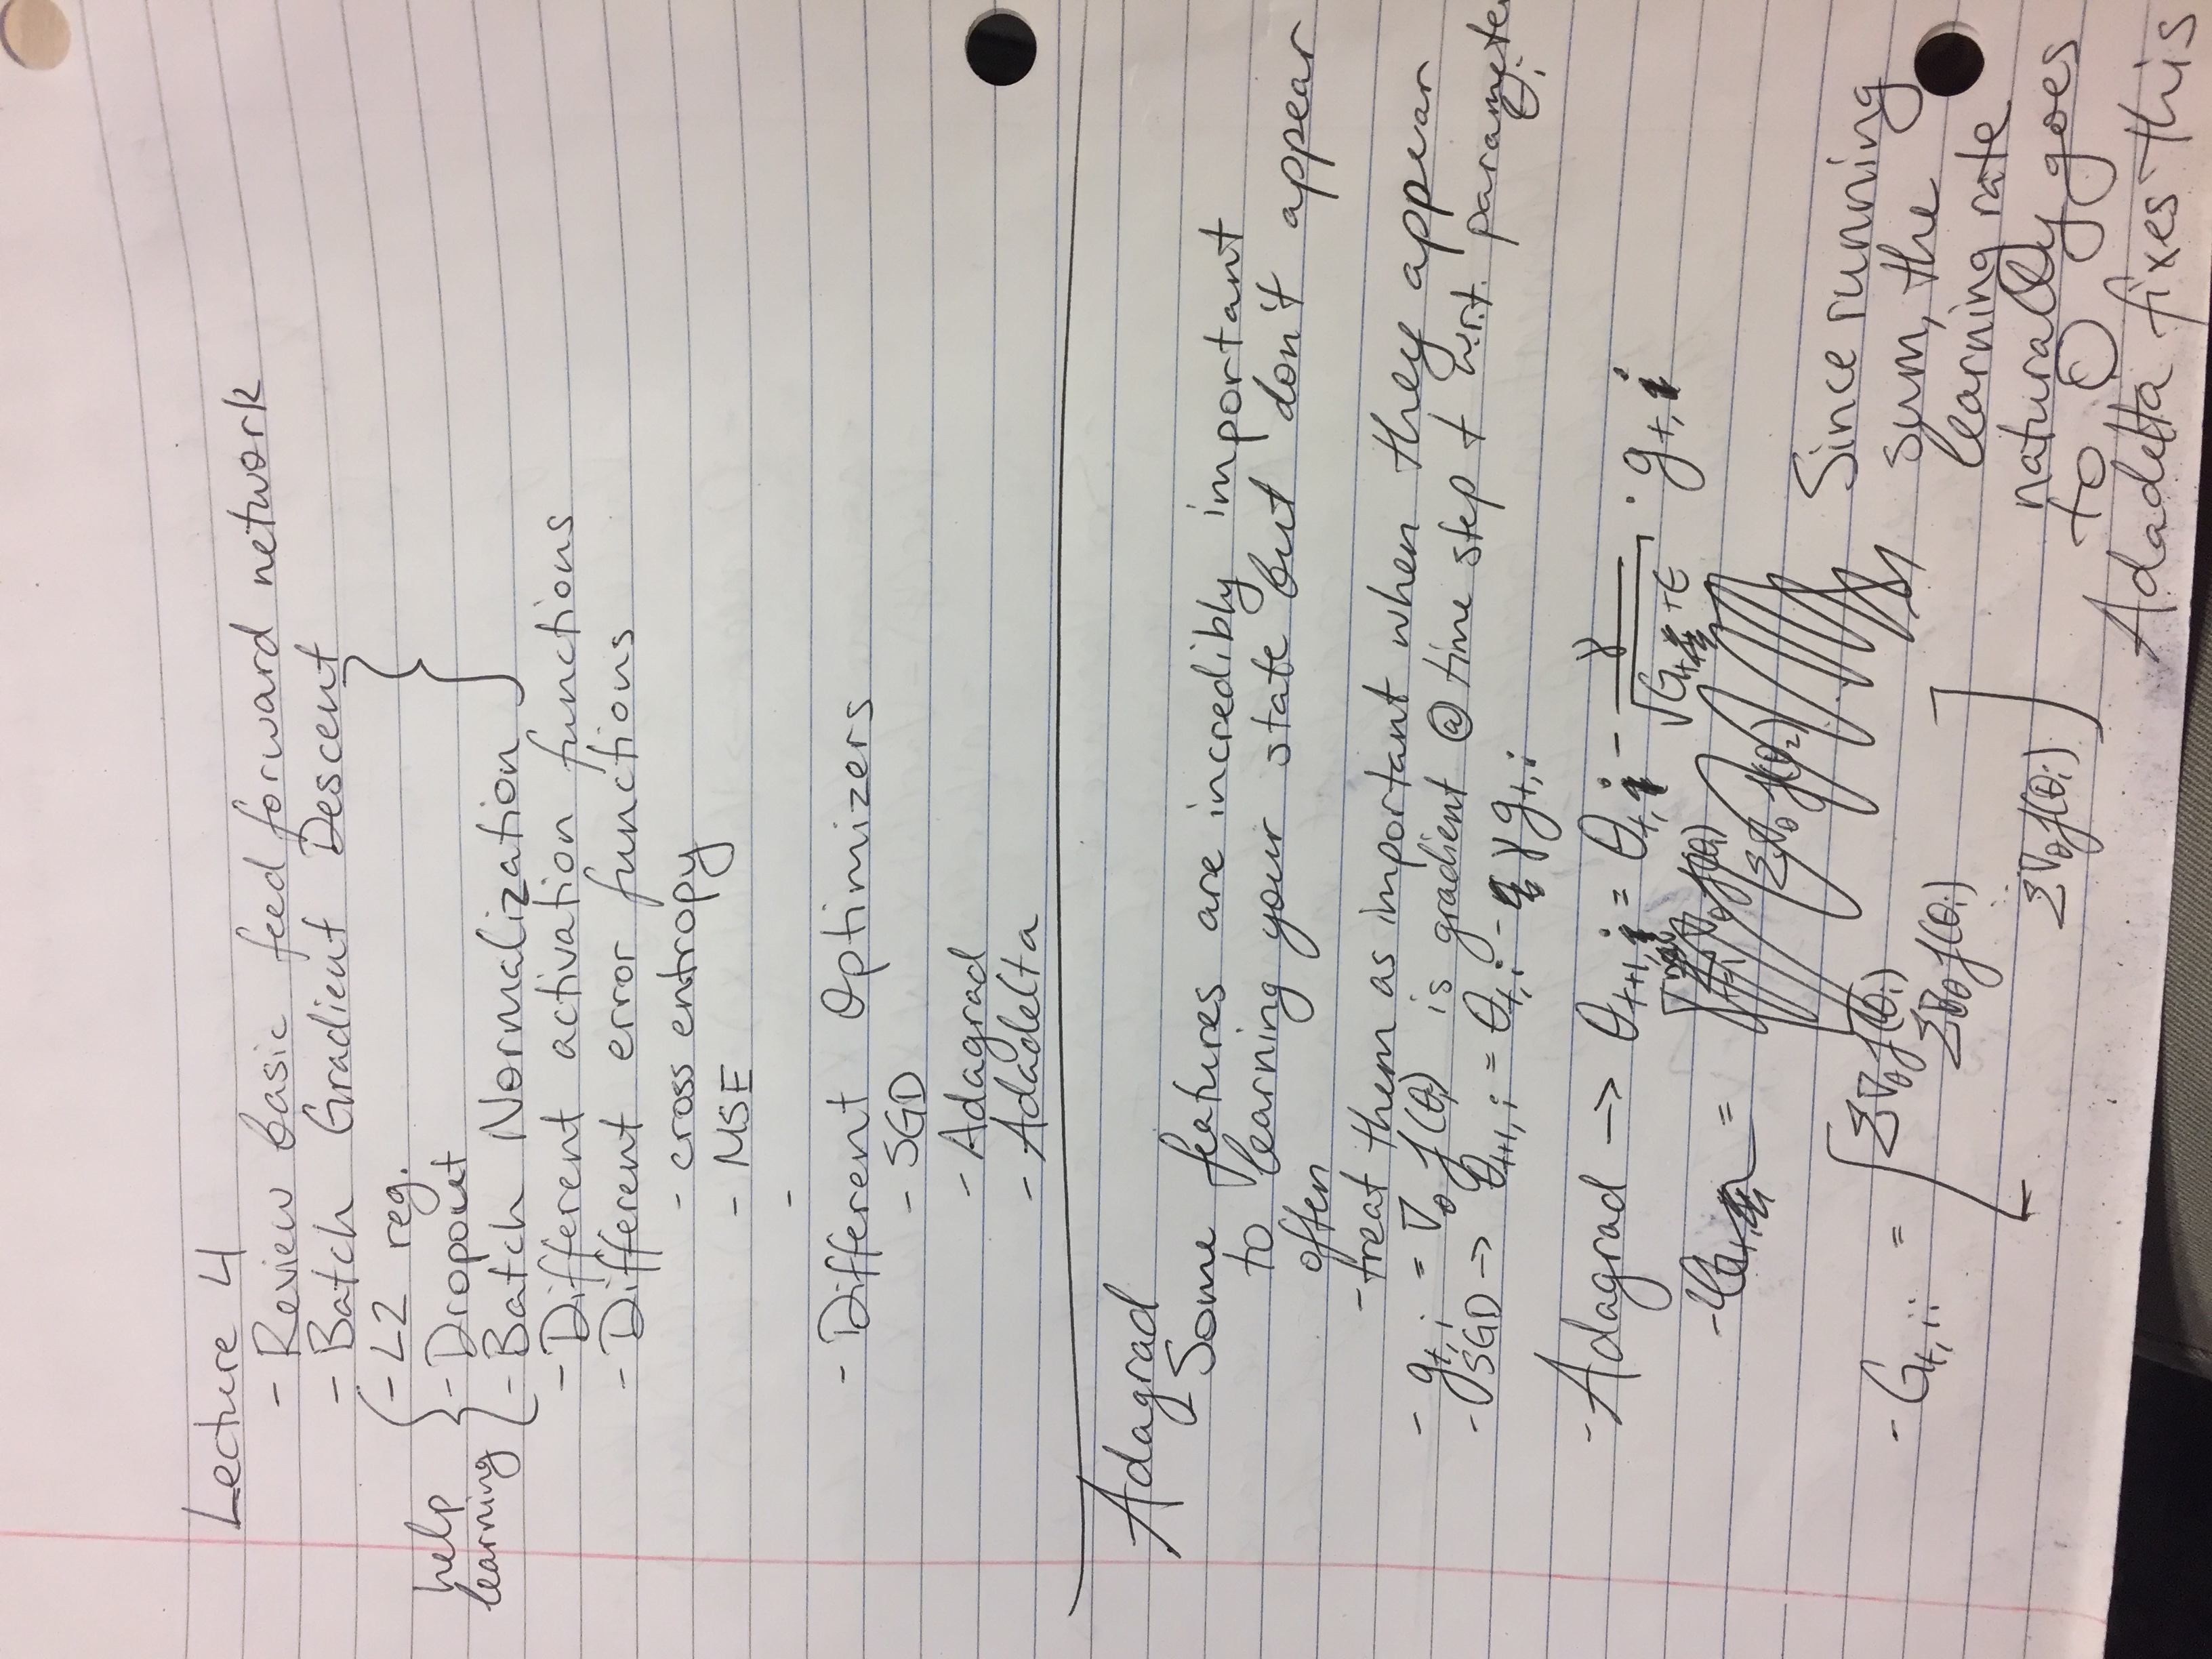 Lecture 4
- Review basic feed forward network
- Batch Gradient Descent
- L2 reg.
help
- Dropout
learning
- Batch Normalization
- Different activation functions
- Different error functions
- cross entropy
- MSE
-
- Different Optimizers
- SGD
- Adagrad
- Adadelta
Adagrad
- Some features are incredibly important
to learning your state but don't appear
often
- treat them as important when they appear
- g_{t,i} = ∇_θ f(θ_i) is gradient @ time step t w.r.t. parameter
θ_i
- SGD → θ_{t+1,i} = θ_{t,i} - γ g_{t,i}
- Adagrad → θ_{t+1,i} = θ_{t,i} - γ/√(G_t + ε) · g_{t,i}
Σ∇_θ f(θ_2)
- G_{t,ii} = [Σ∇_θ f(θ_i)
Σ∇_θ f(θ_i)
Σ∇_θ f(θ_i)]
Since running
sum, the
learning rate
naturally goes
to 0
Adadelta fixes this